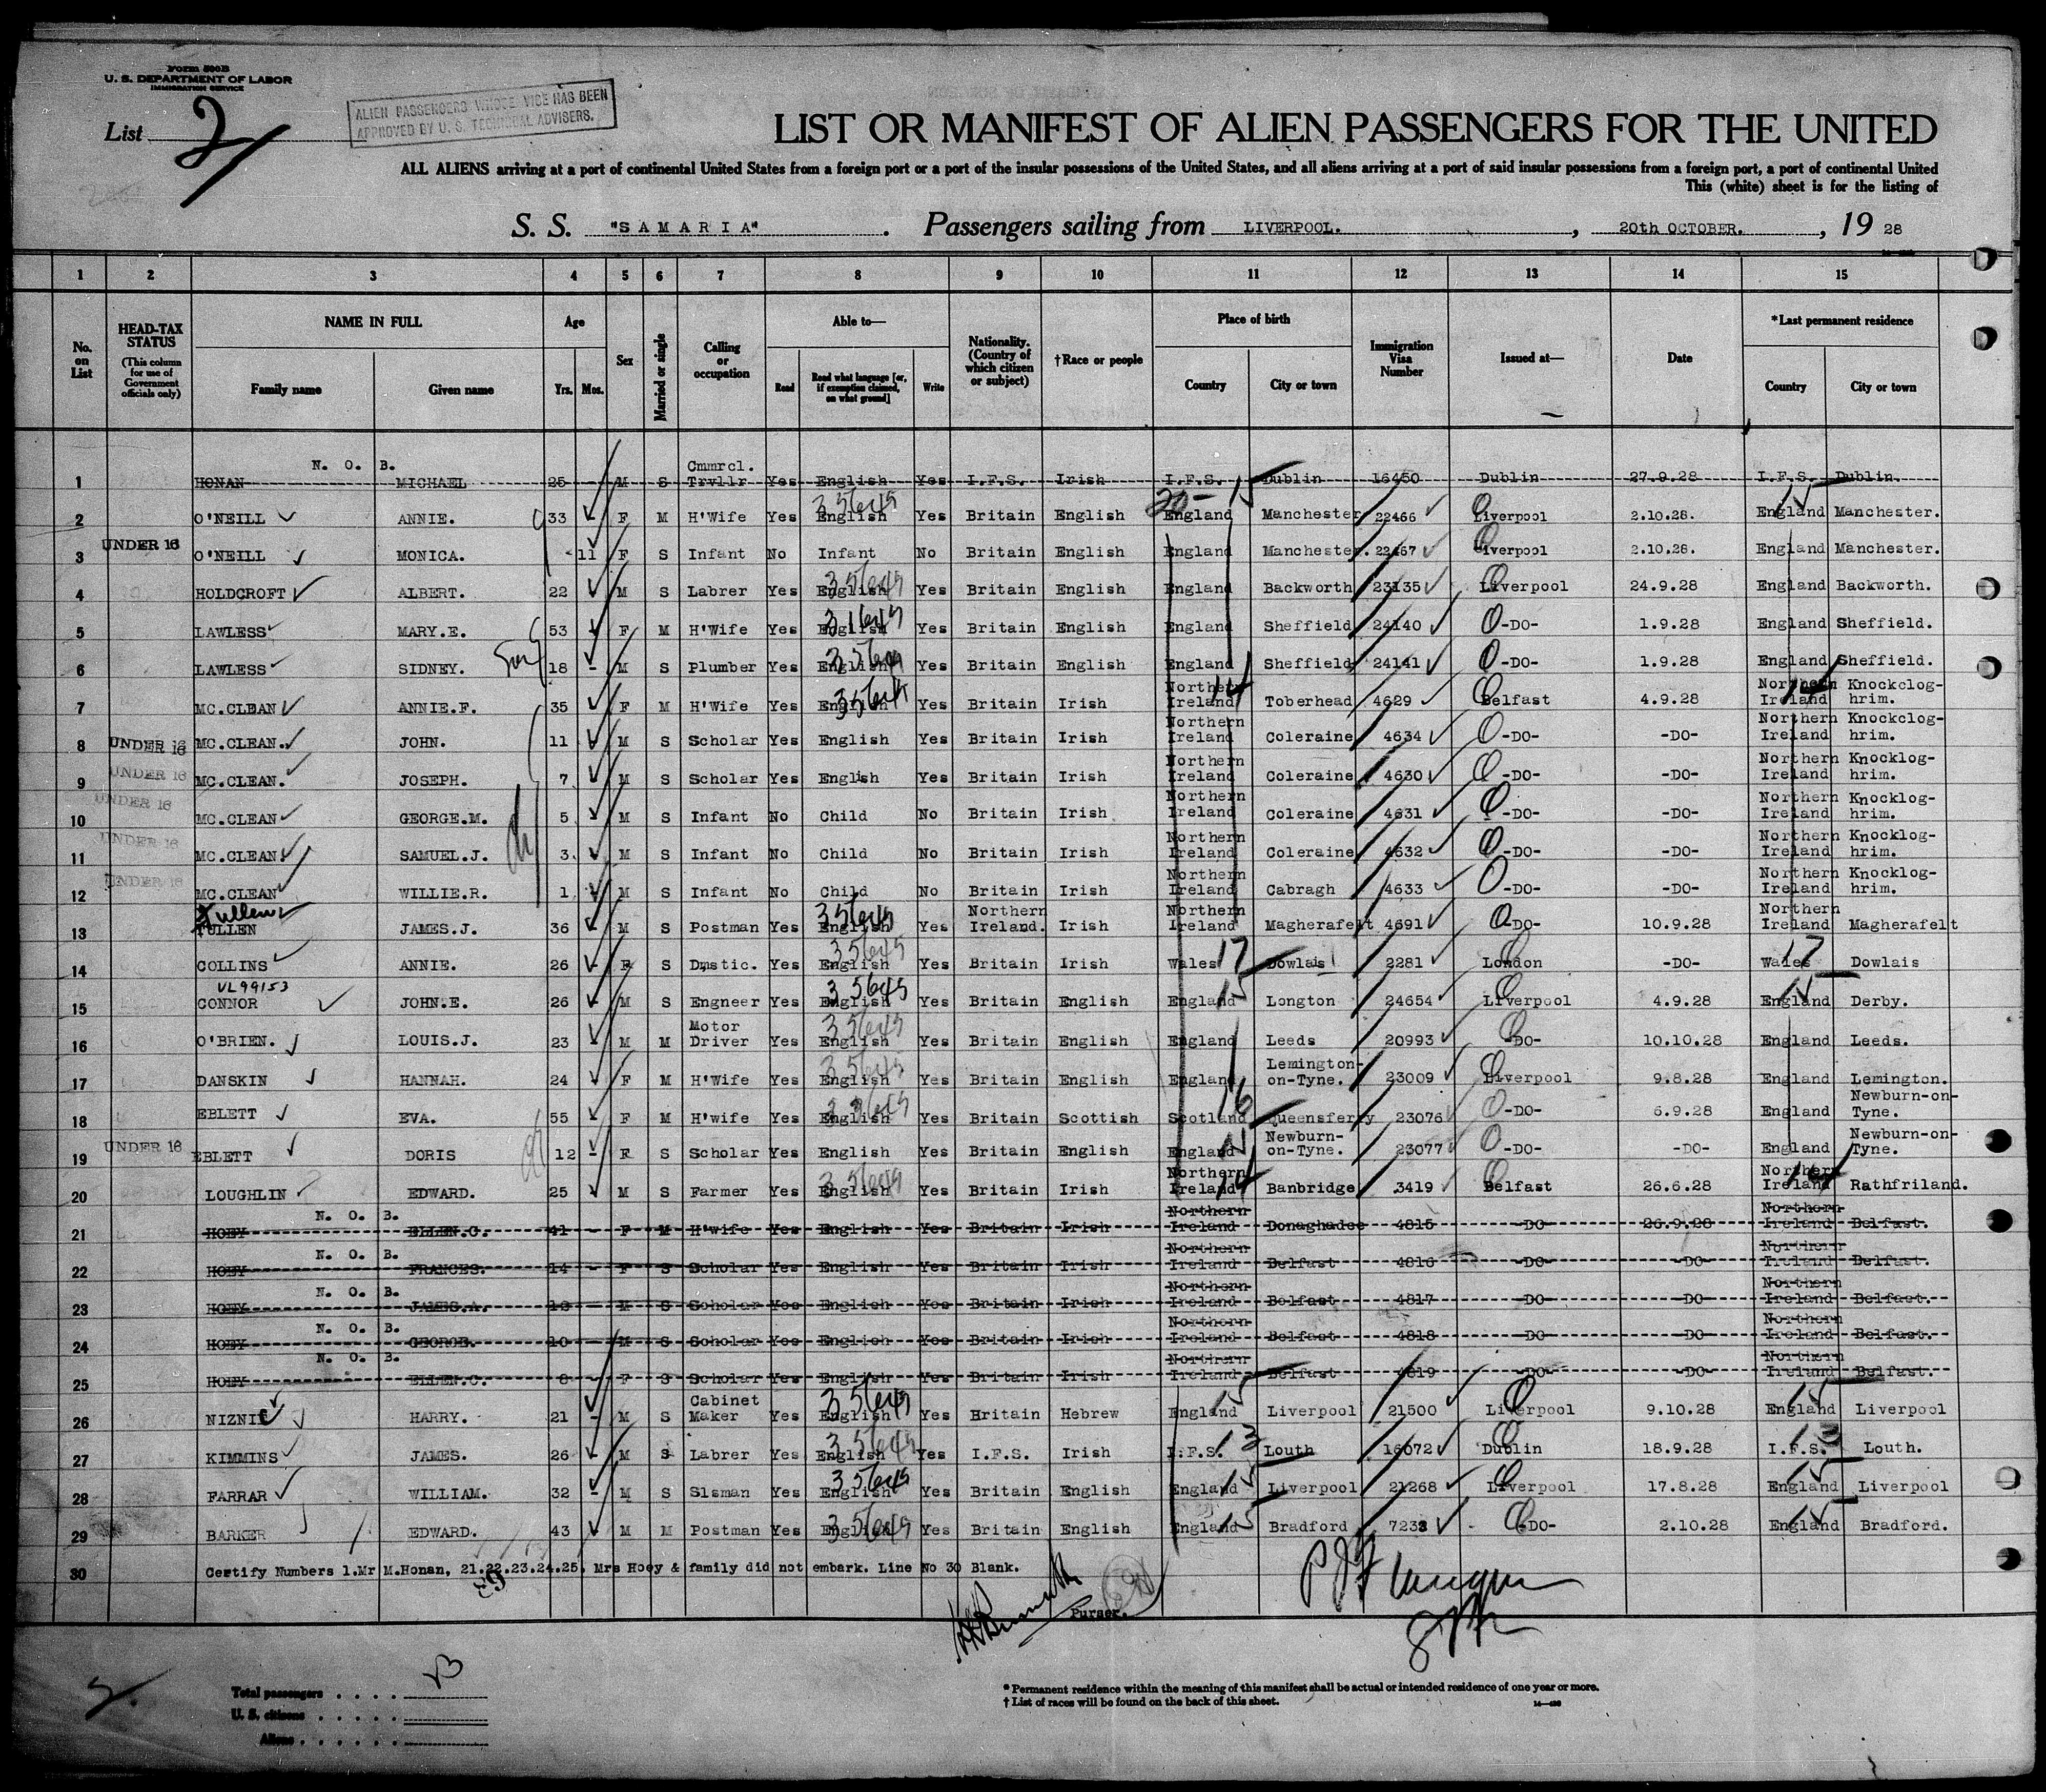 Form 500B
U. S. DEPARTMENT OF LABOR
IMMIGRATION SERVICE
List 2
ALIEN PASSENGERS WHOSE VICE HAS BEEN
APPROVED BY U. S. TECHNICAL ADVISERS.
LIST OR MANIFEST OF ALIEN PASSENGERS FOR THE UNITED
ALL ALIENS arriving at a port of continental United States from a foreign port or a port of the insular possessions of the United States, and all aliens arriving at a port of said insular possessions from a foreign port, a port of continental United
This (white) sheet is for the listing of
S. S. "SAMARIA". Passengers sailing from LIVERPOOL., 20th OCTOBER., 19 28
1 2 3 4 5 6 7 8 9 10 11 12 13 14 15
No. on List
HEAD-TAX STATUS (This column for use of Government officials only)
NAME IN FULL Family name Given name
Age Yrs. Mos.
Sex
Married or single
Calling or occupation
Able to— Read Read what language [or, if exemption claimed, on what ground] Write
Nationality. (Country of which citizen or subject)
†Race or people
Place of birth Country City or town
Immigration Visa Number
Issued at—
Date
*Last permanent residence Country City or town
N. O. B.
1 HONAN MICHAEL 25 M S Cmmrcl. Trvllr Yes English Yes I.F.S. Irish I.F.S. Dublin 16450 Dublin 27.9.28 I.F.S. Dublin.
2 O'NEILL ANNIE. 33 - F M H'Wife Yes English Yes Britain English England Manchester 22466 Liverpool 2.10.28. England Manchester.
3 UNDER 16 O'NEILL MONICA. 11 F S Infant No Infant No Britain English England Manchester. 22467 Liverpool 2.10.28. England Manchester.
4 HOLDCROFT ALBERT. 22 M S Labrer Yes English Yes Britain English England Backworth 23135 Liverpool 24.9.28 England Backworth.
5 LAWLESS MARY.E. 53 F M H'Wife Yes English Yes Britain English England Sheffield 24140 -DO- 1.9.28 England Sheffield.
6 LAWLESS SIDNEY. Son 18 - M S Plumber Yes English Yes Britain English England Sheffield 24141 -DO- 1.9.28 England Sheffield.
7 MC.CLEAN ANNIE.F. 35 F M H'Wife Yes English Yes Britain Irish Northern Ireland Toberhead 4629 Belfast 4.9.28 Northern Ireland Knockclog-hrim.
8 UNDER 16 MC.CLEAN. JOHN. 11 M S Scholar Yes English Yes Britain Irish Northern Ireland Coleraine 4634 -DO- -DO- Northern Ireland Knockclog-hrim.
9 UNDER 16 MC.CLEAN. JOSEPH. 7 M S Scholar Yes English Yes Britain Irish Northern Ireland Coleraine 4630 -DO- -DO- Northern Ireland Knocklog-hrim.
10 UNDER 16 MC.CLEAN GEORGE.M. 5 M S Infant No Child No Britain Irish Northern Ireland Coleraine 4631 -DO- -DO- Northern Ireland Knocklog-hrim.
11 UNDER 16 MC.CLEAN SAMUEL.J. 3. M S Infant No Child No Britain Irish Northern Ireland Coleraine 4632 -DO- -DO- Northern Ireland Knocklog-hrim.
12 UNDER 16 MC.CLEAN WILLIE.R. 1 M S Infant No Child No Britain Irish Northern Ireland Cabragh 4633 -DO- -DO- Northern Ireland Knocklog-hrim.
13 TULLEN JAMES.J. 36 - M S Postman Yes English Yes Northern Ireland. Irish Northern Ireland Magherafelt 4691 -DO- 10.9.28 Northern Ireland Magherafelt
14 COLLINS ANNIE. 26 - F S Dmstic. Yes English Yes Britain Irish Wales 17 Dowlais 2281 London -DO- Wales 17 Dowlais
VL99153
15 CONNOR JOHN.E. 26 - M S Engneer Yes English Yes Britain English England Longton 24654 Liverpool 4.9.28 England Derby.
16 O'BRIEN. LOUIS.J. 23 - M M Motor Driver Yes English Yes Britain English England Leeds 20993 -DO- 10.10.28 England Leeds.
17 DANSKIN HANNAH. 24 F M H'Wife Yes English Yes Britain English England Lemington-on-Tyne. 23009 Liverpool 9.8.28 England Lemington.
18 EBLETT EVA. 55 - F M H'wife Yes English Yes Britain Scottish Scotland 16 Queensferry 23076 -DO- 6.9.28 England Newburn-on-Tyne.
19 UNDER 16 EBLETT DORIS 12 - F S Scholar Yes English Yes Britain English England Newburn-on-Tyne. 23077 -DO- -DO- England Newburn-on-Tyne.
20 LOUGHLIN EDWARD. 25 M S Farmer Yes English Yes Britain Irish Northern Ireland 14 Banbridge 3419 Belfast 26.6.28 Northern Ireland 14 Rathfriland.
N. O. B.
21 HOEY ELLEN.C. 41 - F M H'wife Yes English Yes Britain Irish Northern Ireland Donaghadee 4815 -DO- 26.9.28 Northern Ireland Belfast.
N. O. B.
22 HOEY FRANCES. 14 - F S Scholar Yes English Yes Britain Irish Northern Ireland Belfast 4816 -DO- -DO- Northern Ireland Belfast.
N. O. B.
23 HOEY JAMES.A. M S Scholar Yes English Yes Britain Irish Northern Ireland Belfast 4817 -DO- -DO- Northern Ireland Belfast.
N. O. B.
24 HOEY GEORGE. 10 M S Scholar Yes English Yes Britain Irish Northern Ireland Belfast 4818 -DO- -DO- Northern Ireland Belfast.
N. O. B.
25 HOEY ELLEN.C. 8 - F S Scholar Yes English Yes Britain Irish Northern Ireland Belfast 4819 -DO- -DO- Northern Ireland Belfast.
26 HARRY. 21 - M S Cabinet Maker Yes English Yes Britain Hebrew England 15 Liverpool 21500 Liverpool 9.10.28 England 15 Liverpool
27 KIMMINS JAMES. 26 - M S Labrer Yes English Yes I.F.S. Irish I.F.S. 13 Louth 16072 Dublin 18.9.28 I.F.S. 13 Louth.
28 FARRAR WILLIAM. 32 - M S Slsman Yes English Yes Britain English England 15 Liverpool 21268 Liverpool 17.8.28 England 15 Liverpool
29 BARKER EDWARD. 43 M M Postman Yes English Yes Britain English England 15 Bradford 7238 -DO- 2.10.28 England 15 Bradford.
30 Certify Numbers 1.Mr M.Honan, 21.22.23.24.25. Mrs Hoey & family did not embark. Line No 30 Blank.
Purser.
Total passengers . . . . 23
U. S. citizens . . . . .
Aliens . . . . . .
* Permanent residence within the meaning of this manifest shall be actual or intended residence of one year or more.
† List of races will be found on the back of this sheet.